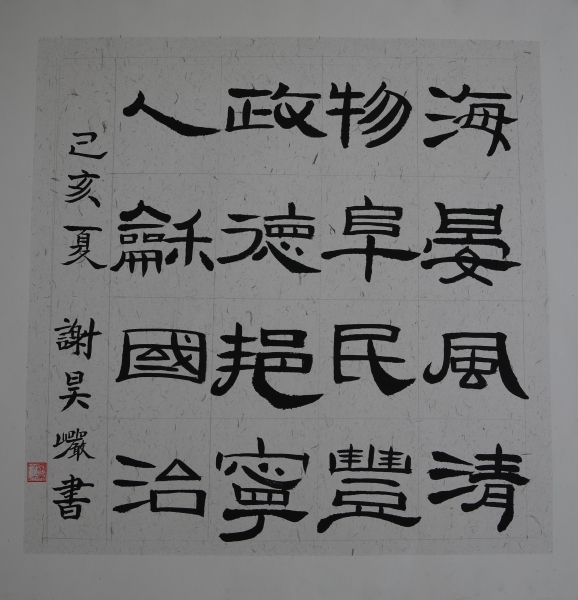 海晏風清
物阜民豐
政德挹寧
人龢國治
己亥夏 謝昊巗書